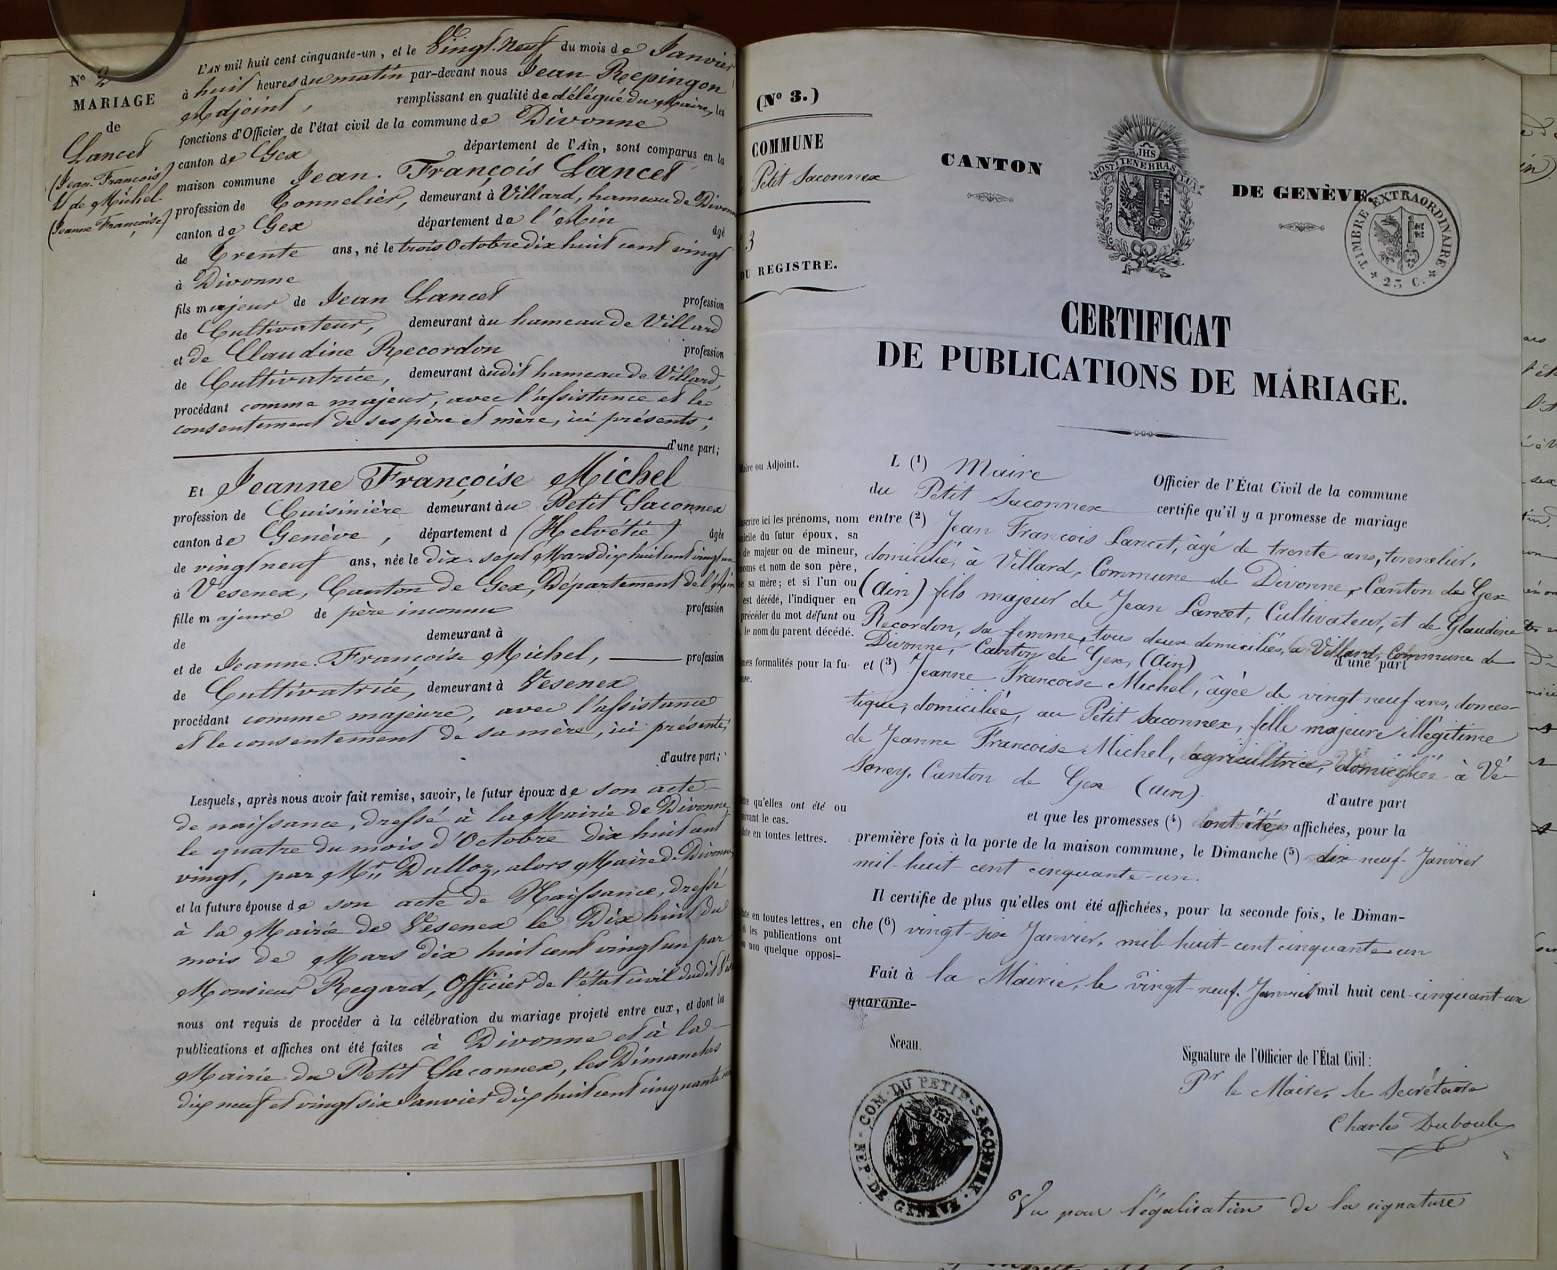 N° 2
MARIAGE
de
Lancet
(Jean François)
& de Michel
(Jeanne Françoise)
L'AN mil huit cent cinquante-un, et le Vingt-neuf du mois de Janvier
à huit heures du matin par-devant nous Jean Répingon
Adjoint, remplissant en qualité de délégué du Maire, les
fonctions d'Officier de l'état civil de la commune de Divonne
canton de Gex département de l'Ain, sont comparus en la
maison commune Jean François Lancet
profession de Tonnelier, demeurant à Villard, hameau de Divonne
canton de Gex département de l'Ain âgé
de Trente ans, né le trois Octobre dix huit cent vingt
à Divonne
fils majeur de Jean Lancet profession
de Cultivateur, demeurant au hameau de Villard
et de Claudine Recordon profession
de Cultivatrice, demeurant audit hameau de Villard,
procédant comme majeur, avec l'assistance et le
consentement de ses père et mère, ici présents;
d'une part;
Et Jeanne Françoise Michel
profession de Cuisinière demeurant au Petit Saconnex
canton de Genève, département d (Helvétie) âgée
de vingt neuf ans, née le dix-sept Mars dix huit cent vingt un
à Vesenex, Canton de Gex, Département de l'Ain
fille majeure de père inconnu profession
de demeurant à
et de Jeanne Françoise Michel, profession
de Cultivatrice, demeurant à Vesenex
procédant comme majeure, avec l'assistance
et le consentement de sa mère, ici présente,
d'autre part;
Lesquels, après nous avoir fait remise, savoir, le futur époux de son acte
de naissance, dressé à la Mairie de Divonne
le quatre du mois d'Octobre dix huit cent
vingt, par Mr. Dulloz, alors Maire de Divonne,
et la future épouse de son acte de Naissance, dressé
à la Mairie de Vesenex le Dix huit du
mois de Mars dix huit cent vingt un par
Monsieur Regard, Officier de l'état civil dudit
nous ont requis de procéder à la célébration du mariage projeté entre eux, et dont la
publications et affiches ont été faites à Divonne et à la
Mairie du Petit Saconnex, les Dimanches
dix neuf et vingt six Janvier dix huit cent cinquante
(N° 3.)
COMMUNE
Petit Saconnex
3
DU REGISTRE.
CANTON DE GENÈVE.
JHS
POST TENEBRAS LUX
TIMBRE EXTRAORDINAIRE
25 C.
CERTIFICAT
DE PUBLICATIONS DE MARIAGE.
Maire ou Adjoint.
L (1) Maire Officier de l'État Civil de la commune
du Petit Saconnex certifie qu'il y a promesse de mariage
inscrire ici les prénoms, nom
domicile du futur époux, sa
de majeur ou de mineur,
noms et nom de son père,
de sa mère; et si l'un ou
est décédé, l'indiquer en
précéder du mot défunt ou
le nom du parent décédé.
entre (2) Jean François Lancet, âgé de trente ans, tonnelier,
domicilié, à Villard, Commune de Divonne, Canton de Gex
(Ain) fils majeur de Jean Lancet, Cultivateur, et de Glaudine
Recordon, sa femme, tous deux domiciliés, à Villard, Commune de
Divonne, Canton de Gex, (Ain) d'une part
mêmes formalités pour la fu-
et (3) Jeanne Francoise Michel, âgée de vingt neuf ans, domes-
tique, domiciliée, au Petit Saconnex, fille majeure illégitime
de Jeanne Francoise Michel, agricultrice, domiciliée à Vé-
senex, Canton de Gex (Ain). d'autre part
qu'elles ont été ou
suivant le cas.
en toutes lettres.
et que les promesses (4) ont été affichées, pour la
première fois à la porte de la maison commune, le Dimanche (5) dix neuf Janvier
mil-huit-cent cinquante-un.
Il certifie de plus qu'elles ont été affichées, pour la seconde fois, le Diman-
che (6) vingt-six Janvier, mil-huit-cent cinquante-un
en toutes lettres, en
les publications ont
ou non quelque opposi-
Fait à la Mairie, le vingt-neuf Janvier mil huit cent cinquant-un
quarante-
Sceau.
Signature de l'Officier de l'État Civil:
Pr le Maire, le Secrétaire
Charles Duboule
COM. DU PETIT-SACONNEX
REP. DE GENEVE
Vu pour légalisation de la signature